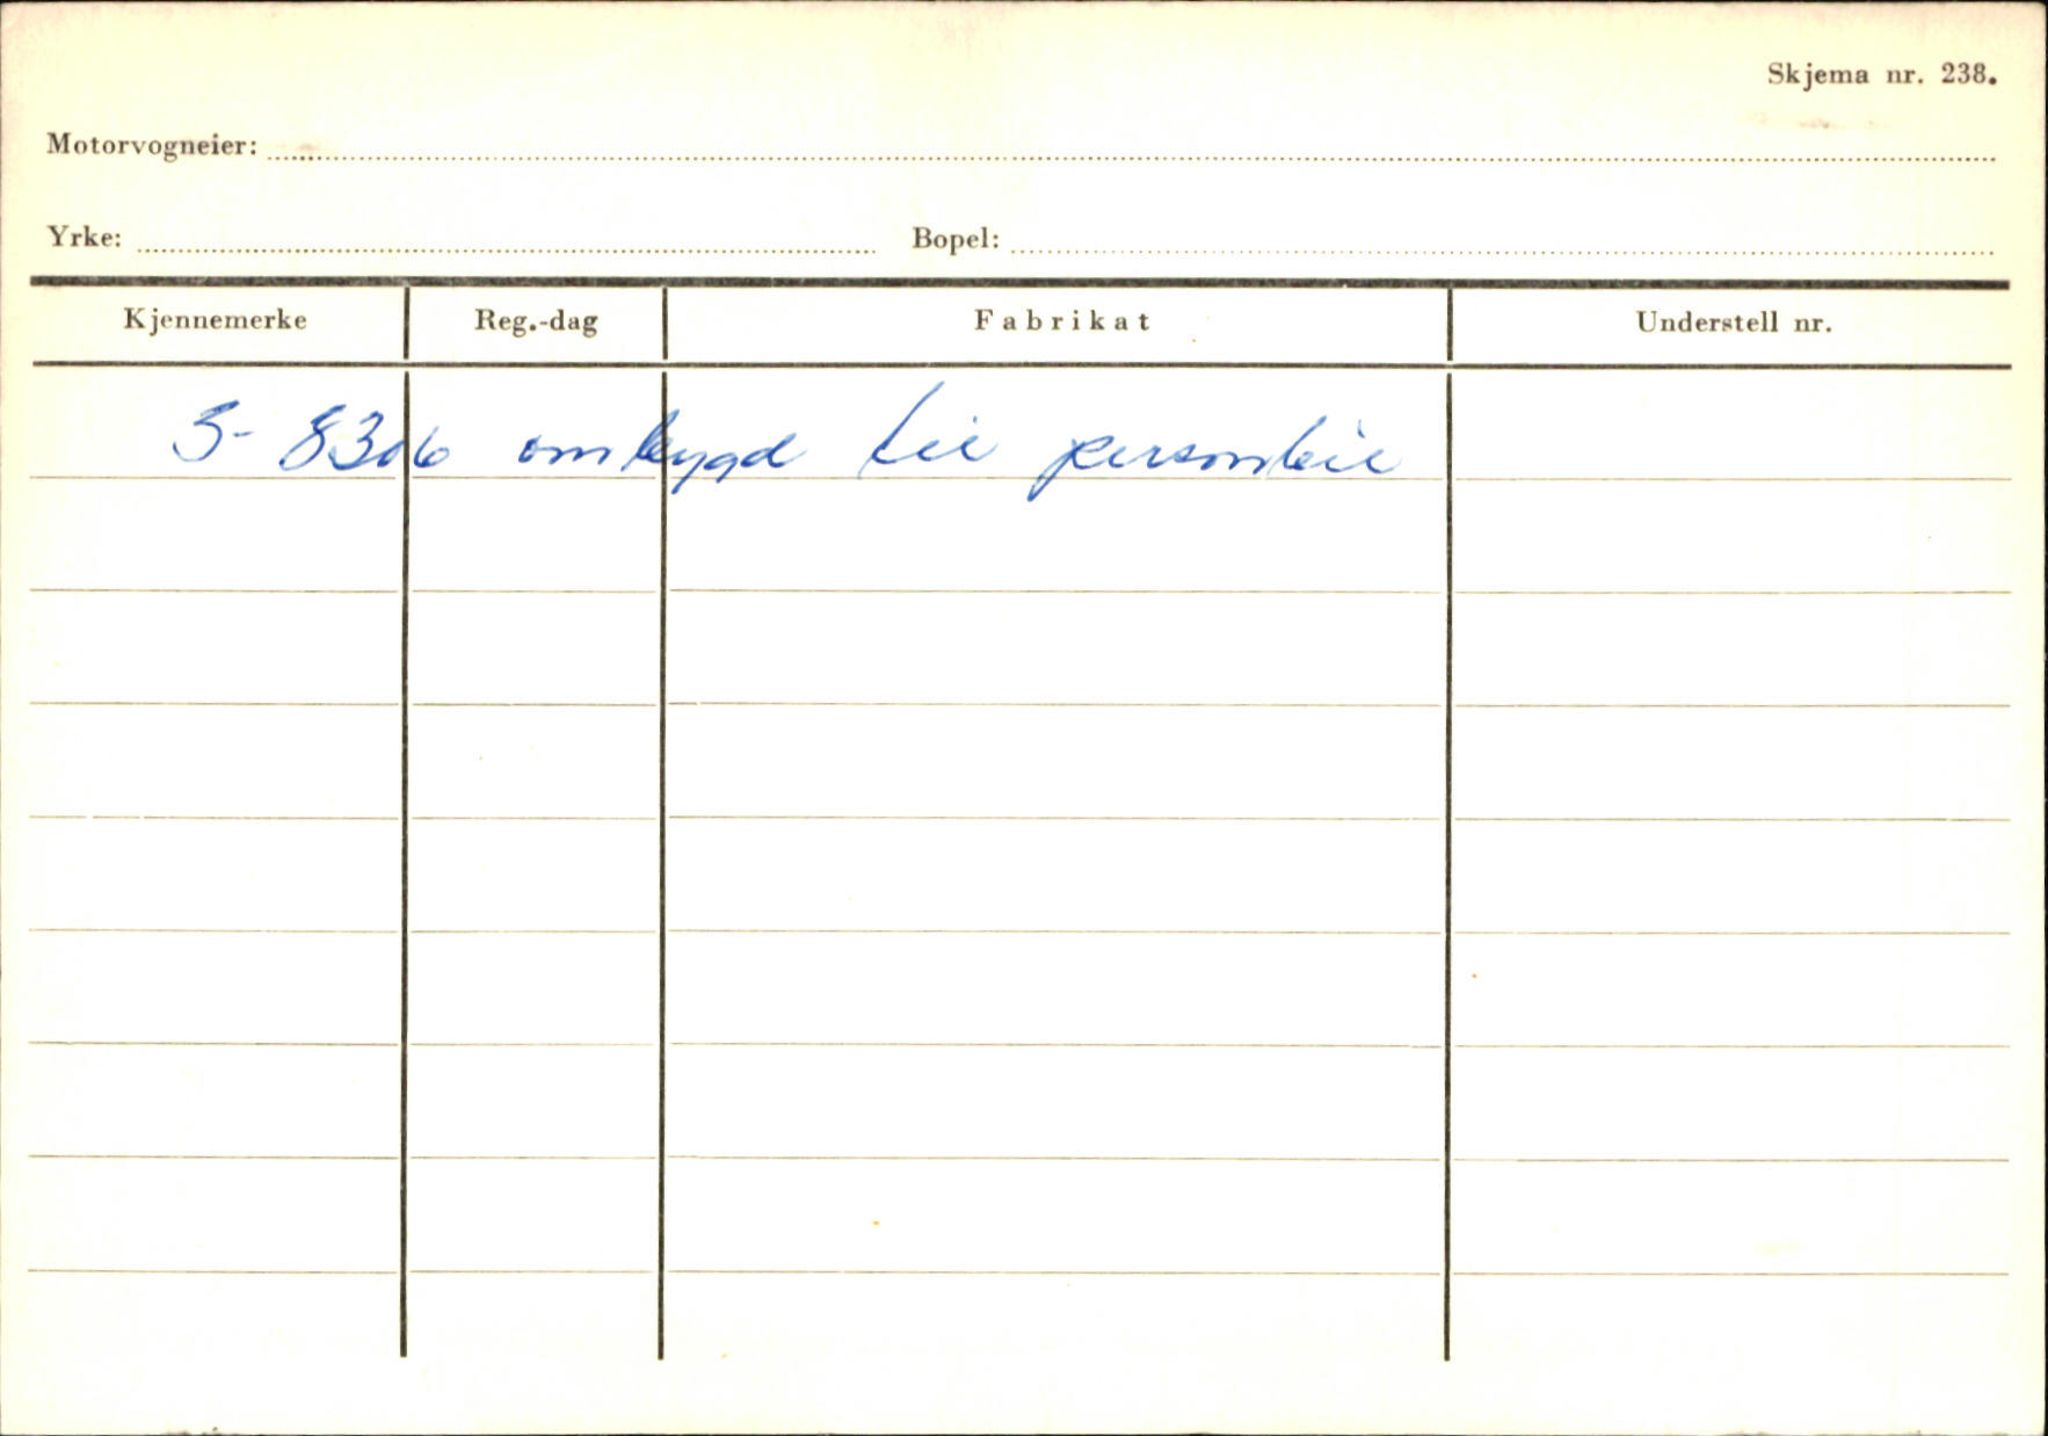 Skjema nr. 238.
Motorvogneier:
Yrke: Bopel:
Kjennemerke Reg.-dag Fabrikat Understell nr.
S- 8306 ombygd til personbil